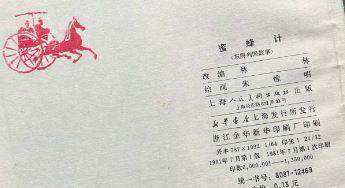 蜜蜂计
(东周列国故事)
改编 林林
绘画 朱
上海人民美术出版社出版
新华书店上海发行所发行
浙江金华新华印刷厂印刷
开本787×1092 1/64 印张1 21/32
1981年7月第1版 1981年7月第1次印刷
印数0,000,001—1,350,000
统一书号:8081·12469
定价:0.13元